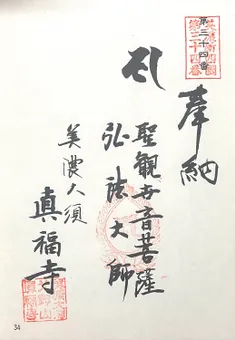 第三十四番
奉納
聖観世音菩薩
弘法大師
美濃人須
真福寺
34